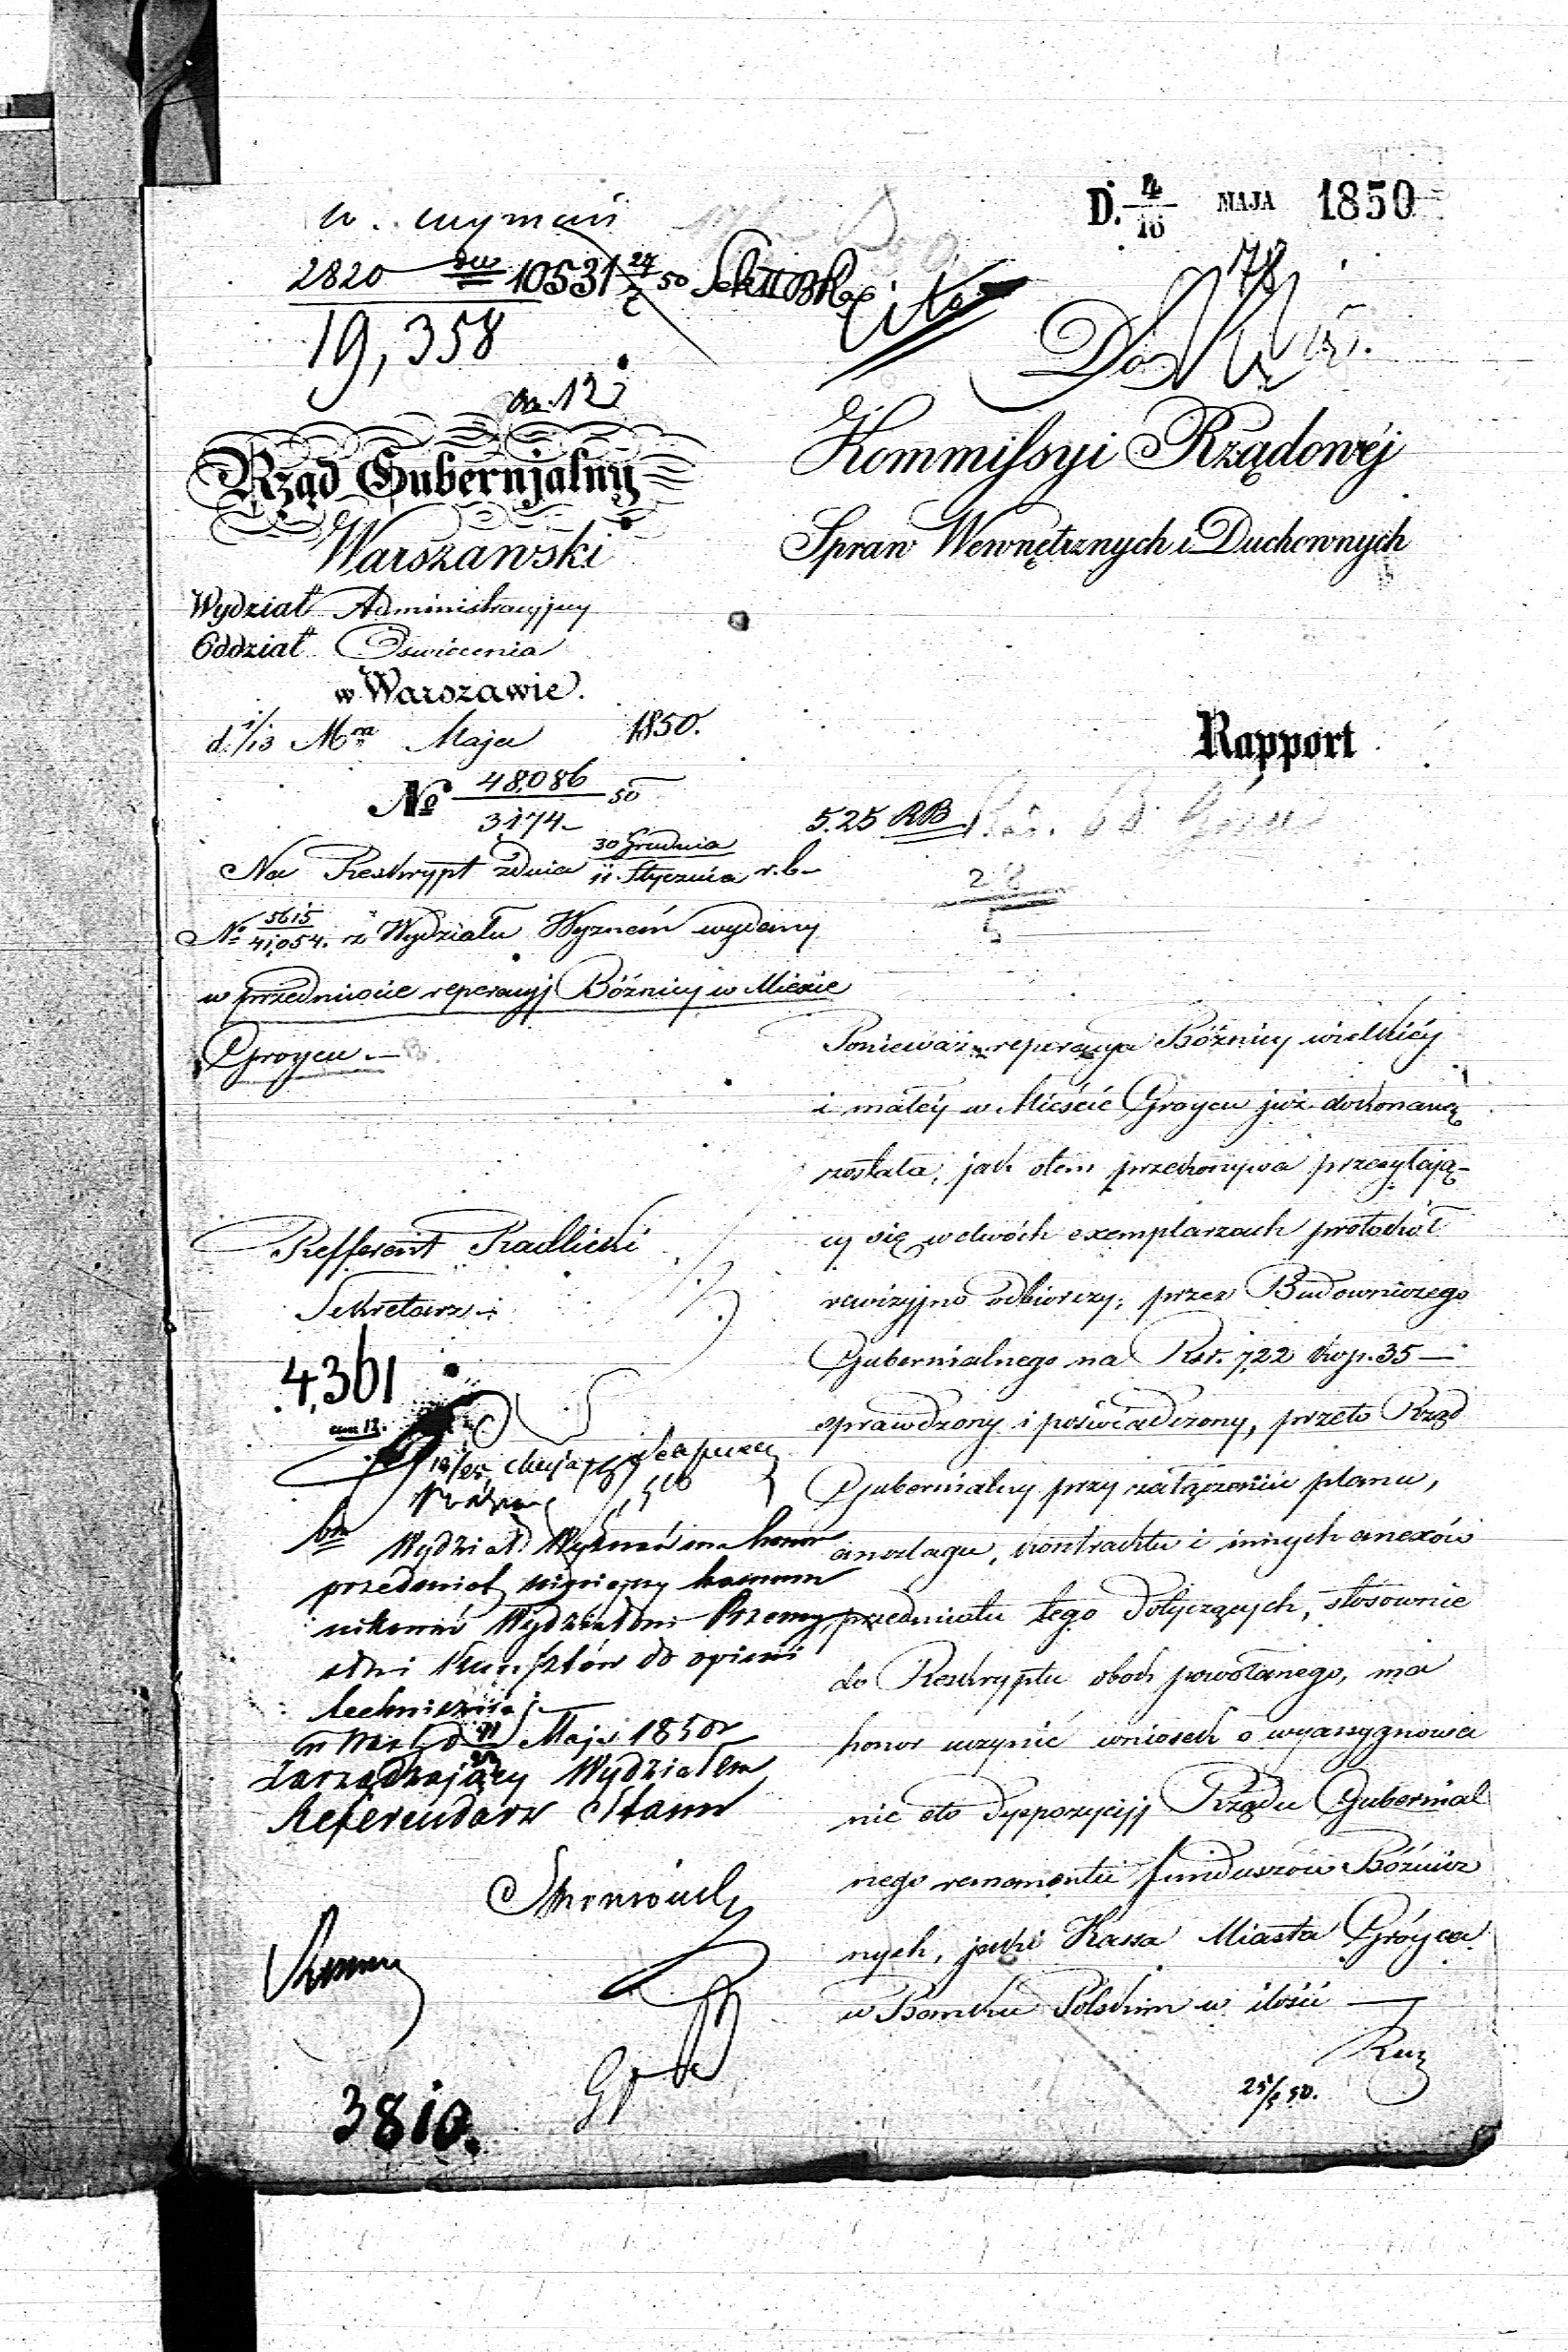 D. 4/16 MAJA 1850
W. Wyznań
2820 10531 50
19,358
78
Do
Kommissyi Rządowéj
Spraw Wewnętrznych i Duchownych
Rząd Gubernjalny
Warszawski
Wydział Administracyjny
Oddział Oswiecenia
w Warszawie.
d. 1/13 Mca Maja 1850.
Rapport
No 48,086/3174 50
5.25 RB
Na Reskrypt z dnia 30 Grudnia/11 Stycznia r. b.
No 5615/41,054. z Wydziału Wyznań wydany
w przedmiocie reperacyj Bóźnicy w Mieście
Groycu.
Ponieważ reperacya Bóźnicy wielkiéy
i małéy w Mieście Groycu już dokonaną
została, jak o tem przekonywa przesyłają-
cy się w dwóch exemplarzach protokół
rewizyjno odbiorczy, przez Budowniczego
Gubernialnego na Rsr. 722 kop. 35 —
sprawdzony i poświadczony, przeto Rząd
Gubernialny przy załączeniu planu,
anszlagu, kontraktu i innych anexów
przedmiotu tego dotyczących, stosownie
do Reskryptu obok powołanego, ma
honor uczynić wniosek o wyassygnowa
nie do dyspozycyj Rządu Gubernial
nego remanentu funduszów Bóźnicz
nych, jaki Kassa Miasta Gróyca
w Banku Polskim w ilości
25/5 50.
Refferent Radlicki
Sekretarz
4,361
Wydział Wyznań ma honor
przedmiot niniejszy kommu
nikować Wydziałowi Przemy
słu i Kunsztów do opinii
technicznéj
Maja 1850 r
Zarządzający Wydziałem
Referendarz Stanu
3810.